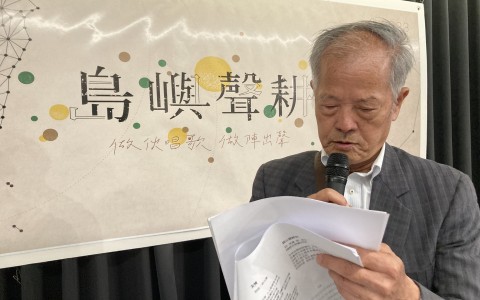 島嶼聲耕
做伙唱歌 做陣出聲